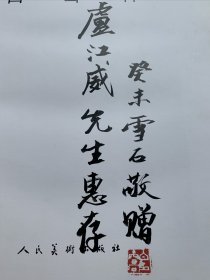 盧江威先生惠存
癸未雪石敬赠
人民美術出版社